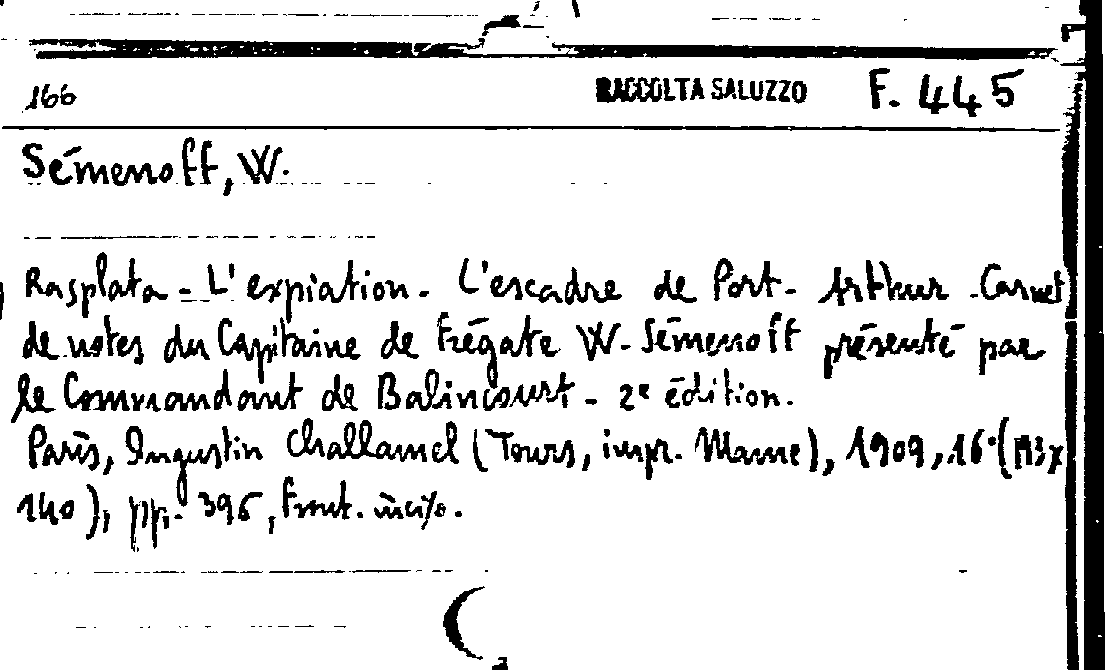 166 RACCOLTA SALUZZO F. 445
Sémenoff, W.
Rasplata - L'expiation - L'escadre de Port-Arthur - Carnet
de notes du Capitaine de Frégate W. Sémenoff présenté par
le Commandant de Balincourt - 2e édition.
Paris, Augustin Challamel (Tours, impr. Mame), 1909, 16° (
140), pp. 396, front. incis.